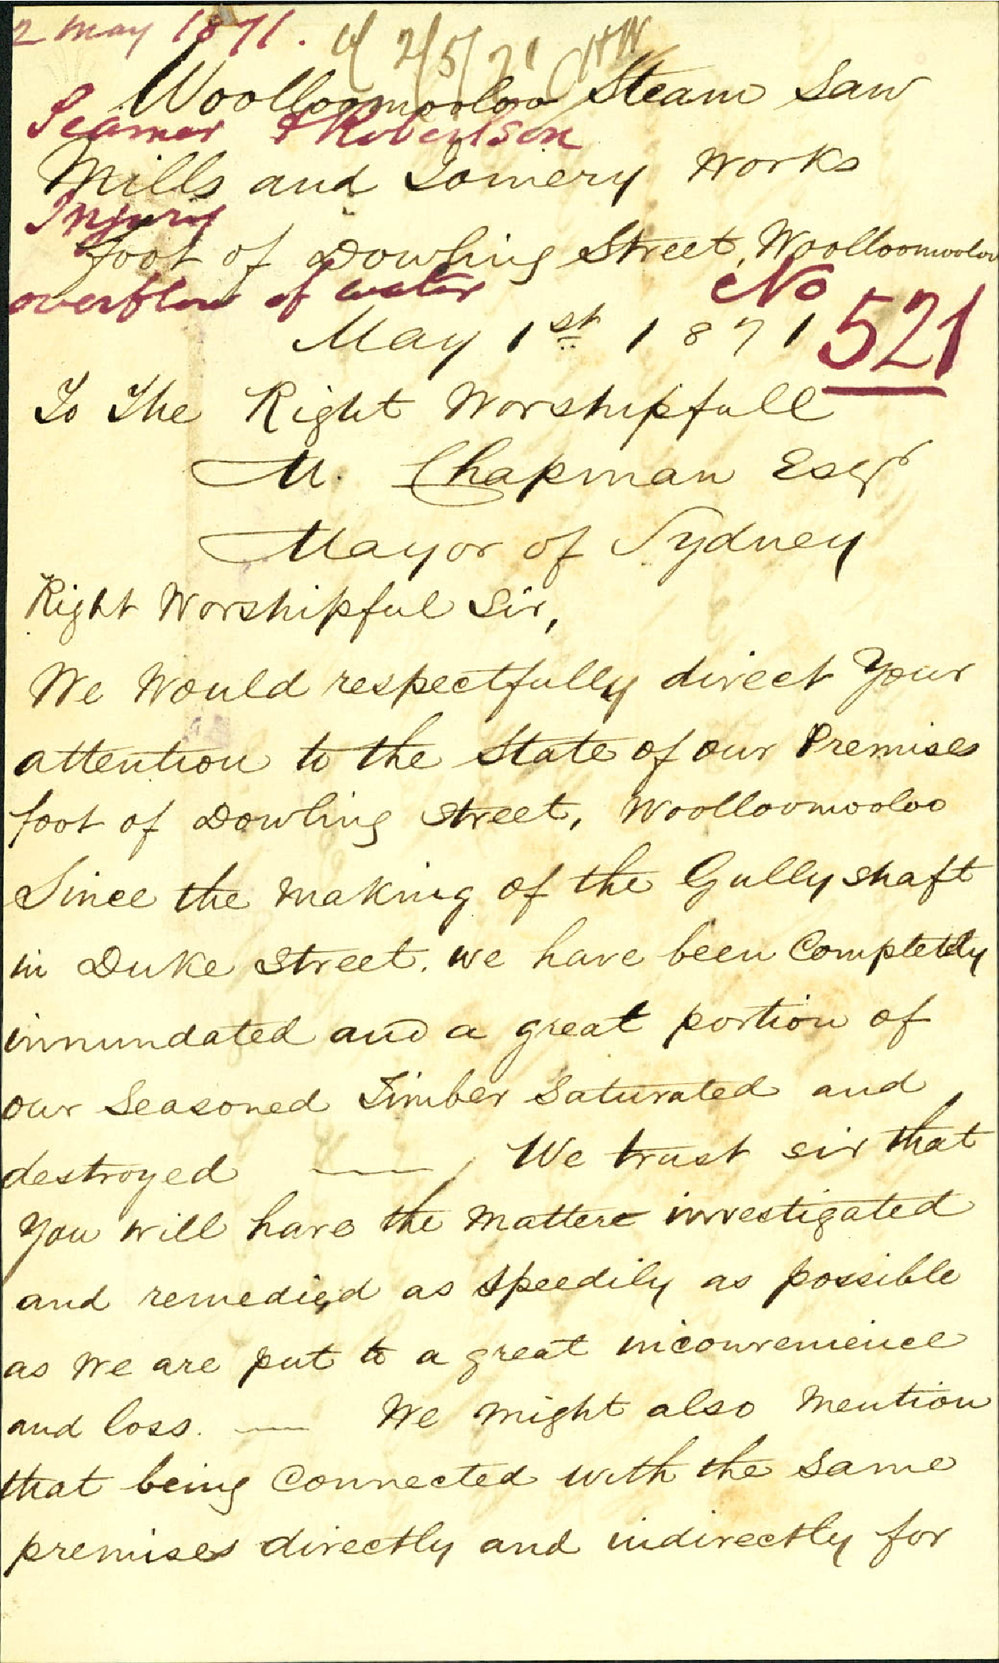 2 May 1871.
2/5/71
Woolloomooloo Steam Saw
Seamer & Robertson
Mills and Joinery Works
Injury
foot of Dowling Street, Woolloomooloo
overflow of water
No
521
May 1st 1871
To The Right Worshipfull
M. Chapman Esqr
Mayor of Sydney
Right Worshipful Sir,
We Would respectfully direct Your
attention to the State of our Premises
foot of Dowling Street, Woolloomooloo
Since the making of the Gully shaft
in Duke Street. we have been Completely
innundated and a great portion of
our Seasoned Timber Saturated and
destroyed —— We trust sir that
You will have the matter investigated
and remedied as speedily as possible
as We are put to a great inconvenience
and loss. — We might also mention
that being Connected with the same
premises directly and indirectly for